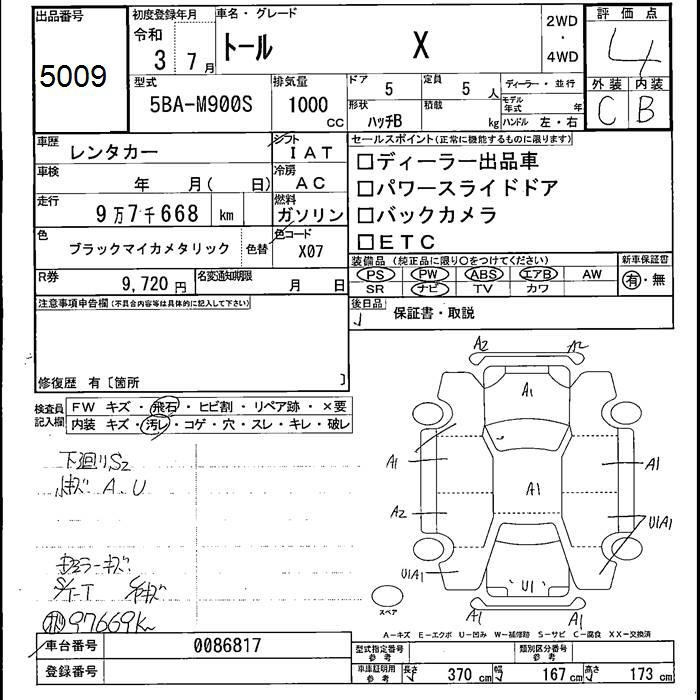 出品番号 初度登録年月 車名・グレード 2WD ・ 4WD 評価点
5009 令和 3年 7月 トール X 4
型式 排気量 ドア 定員 ディーラー・並行 外装 内装
5BA-M900S 1000 CC 5 5 人 モデル年式 年 C B
形状 積載 ハッチB kg ハンドル 左・右
車歴 レンタカー シフト IAT
車検 年 月( 日) 冷房 AC
走行 9万7千668 km 燃料 ガソリン
色 ブラックマイカメタリック 色替 色コード X07
R券 9,720 円 名変通知期限 月 日
セールスポイント(正常に機能するものに限ります)
□ディーラー出品車
□パワースライドドア
□バックカメラ
□ETC
装備品 (純正品に限り○をつけてください) 新車保証書
PS PW ABS エアB AW 有・無
SR ナビ TV カワ
後日品 保証書・取説
注意事項申告欄(不具合内容等は具体的に記入して下さい)
修復歴 有〔箇所 〕
検査員記入欄 FW キズ・飛石・ヒビ割・リペア跡・×要
内装 キズ・汚レ・コゲ・穴・スレ・キレ・破レ
下廻りS2
小キズ A.U
キズ
97669K
A2 A2
A1
A1 A1 A1
A2 U1A1
U1A1 U1
A1 A1
スペア
A-キズ E-エクボ U-凹み W-補修跡 S-サビ C-腐食 XX-交換済
車台番号 0086817
登録番号
型式指定番号 参考 類別区分番号 参考
車庫証明用 参考 長さ 370 cm 幅 167 cm 高さ 173 cm